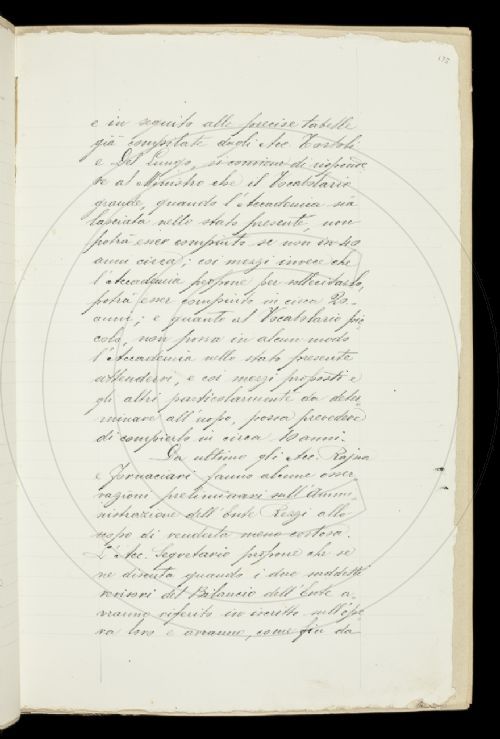 e in seguito alle precise tabelle
già compilate dagli Acc. Tortoli
e Del Lungo, si conviene di rispónde
re al Ministro che il Vocabolario
grande, quando l'Accademia sia
lasciata nello stato presente, non
potrà esser compiuto se non in 40
anni circa; coi mezzi invece che
l'Accademia propone per sollecitarlo,
potrà esser compiuto in circa 20
anni; e quanto al Vocabolario pic
colo, non possa in alcun modo
l'Accademia nello stato presente
attendervi, e coi mezzi proposti e
gli altri particolarmente da deter=
minare all'uopo, possa prevedere
di compierlo in circa 10 anni.
Da ultimo gli Acc. Rajna
e Fornaciari fanno alcune osser
vazioni preliminari sull'Ammi=
nistrazione dell'Ente Rezzi allo
scopo di renderla meno costosa.
L'Acc. Segretario propone che se
ne discuta quando i due suddetti
revisori del Bilancio dell'Ente a=
vranno riferito in iscritto sull'ópe
ra loro e avranno, come fin da